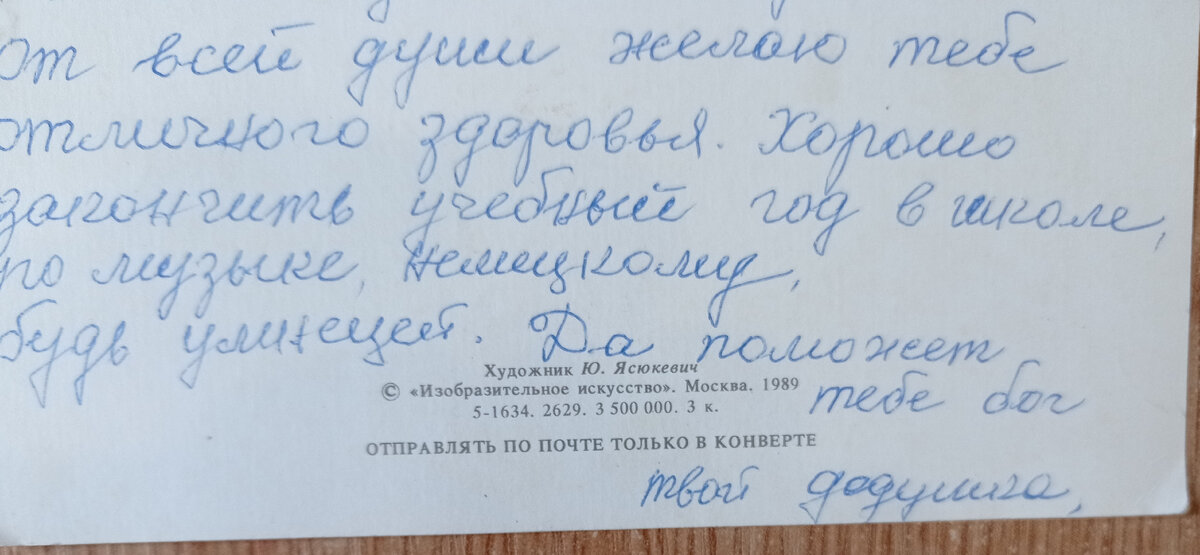 от всей души желаю тебе
отличного здоровья. Хорошо
закончить учебный год в школе,
по музыке, немицкому,
будь умницей. Да поможет
Художник Ю. Ясюкевич
© «Изобразительное искусство». Москва. 1989
тебе бог
5-1634. 2629. 3 500 000. 3 к.
ОТПРАВЛЯТЬ ПО ПОЧТЕ ТОЛЬКО В КОНВЕРТЕ
твой дедушка,